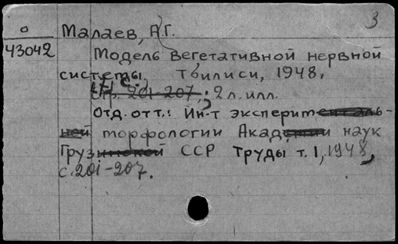 3
о Малаев, А.Г.
43042 Модель вегетативной нервной
системы. Тбилиси, 1948.
стр. 201-207, 2 л. илл.
Отд. отт.: Ин-т эксперитентль-
ной морфологии Академии наук
Грузинской ССР Труды т. I, 1948,
с. 201-207.